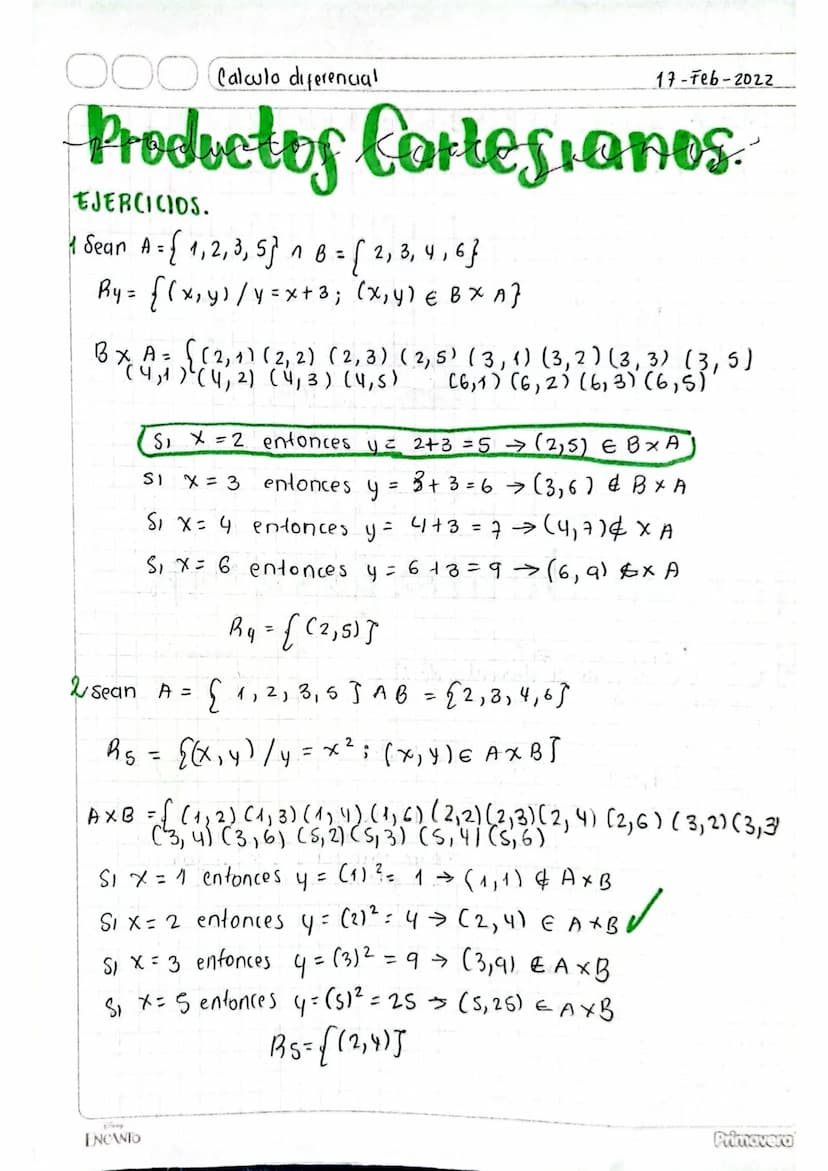 Calculo diferencial 17-Feb-2022
Productos Cartesianos.
EJERCICIOS.
1 Sean A = { 1, 2, 3, 5} ∧ B = { 2, 3, 4, 6}
R4 = {(x, y) / y = x+3; (x, y) ∈ B x A}
B x A = {(2,1) (2,2) (2,3) (2,5) (3,1) (3,2) (3,3) (3,5)
(4,1) (4,2) (4,3) (4,5) (6,1) (6,2) (6,3) (6,5)
Si x = 2 entonces y = 2+3 = 5 → (2,5) ∈ B x A
Si x = 3 entonces y = 3+3 = 6 → (3,6) ∉ B x A
Si x = 4 entonces y = 4+3 = 7 → (4,7) ∉ x A
Si x = 6 entonces y = 6+3 = 9 → (6,9) ∉ x A
R4 = { (2,5)}
2 Sean A = { 1, 2, 3, 5 } ∧ B = {2, 3, 4, 6}
R5 = {(x, y) / y = x²; (x, y) ∈ A x B}
A x B = { (1,2) (1,3) (1,4) (1,6) (2,2) (2,3) (2,4) (2,6) (3,2) (3,3)
(3,4) (3,6) (5,2) (5,3) (5,4) (5,6)
Si x = 1 entonces y = (1)² = 1 → (1,1) ∉ A x B
Si x = 2 entonces y = (2)² = 4 → (2,4) ∈ A x B ✓
Si x = 3 entonces y = (3)² = 9 → (3,9) ∉ A x B
Si x = 5 entonces y = (5)² = 25 → (5,25) ∈ A x B
R5 = {(2,4)}
Disney
ENCANTO Primavera